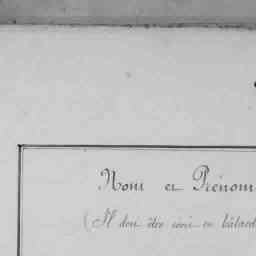 Nom et Prénom
(Il doit être écrit en bâtard